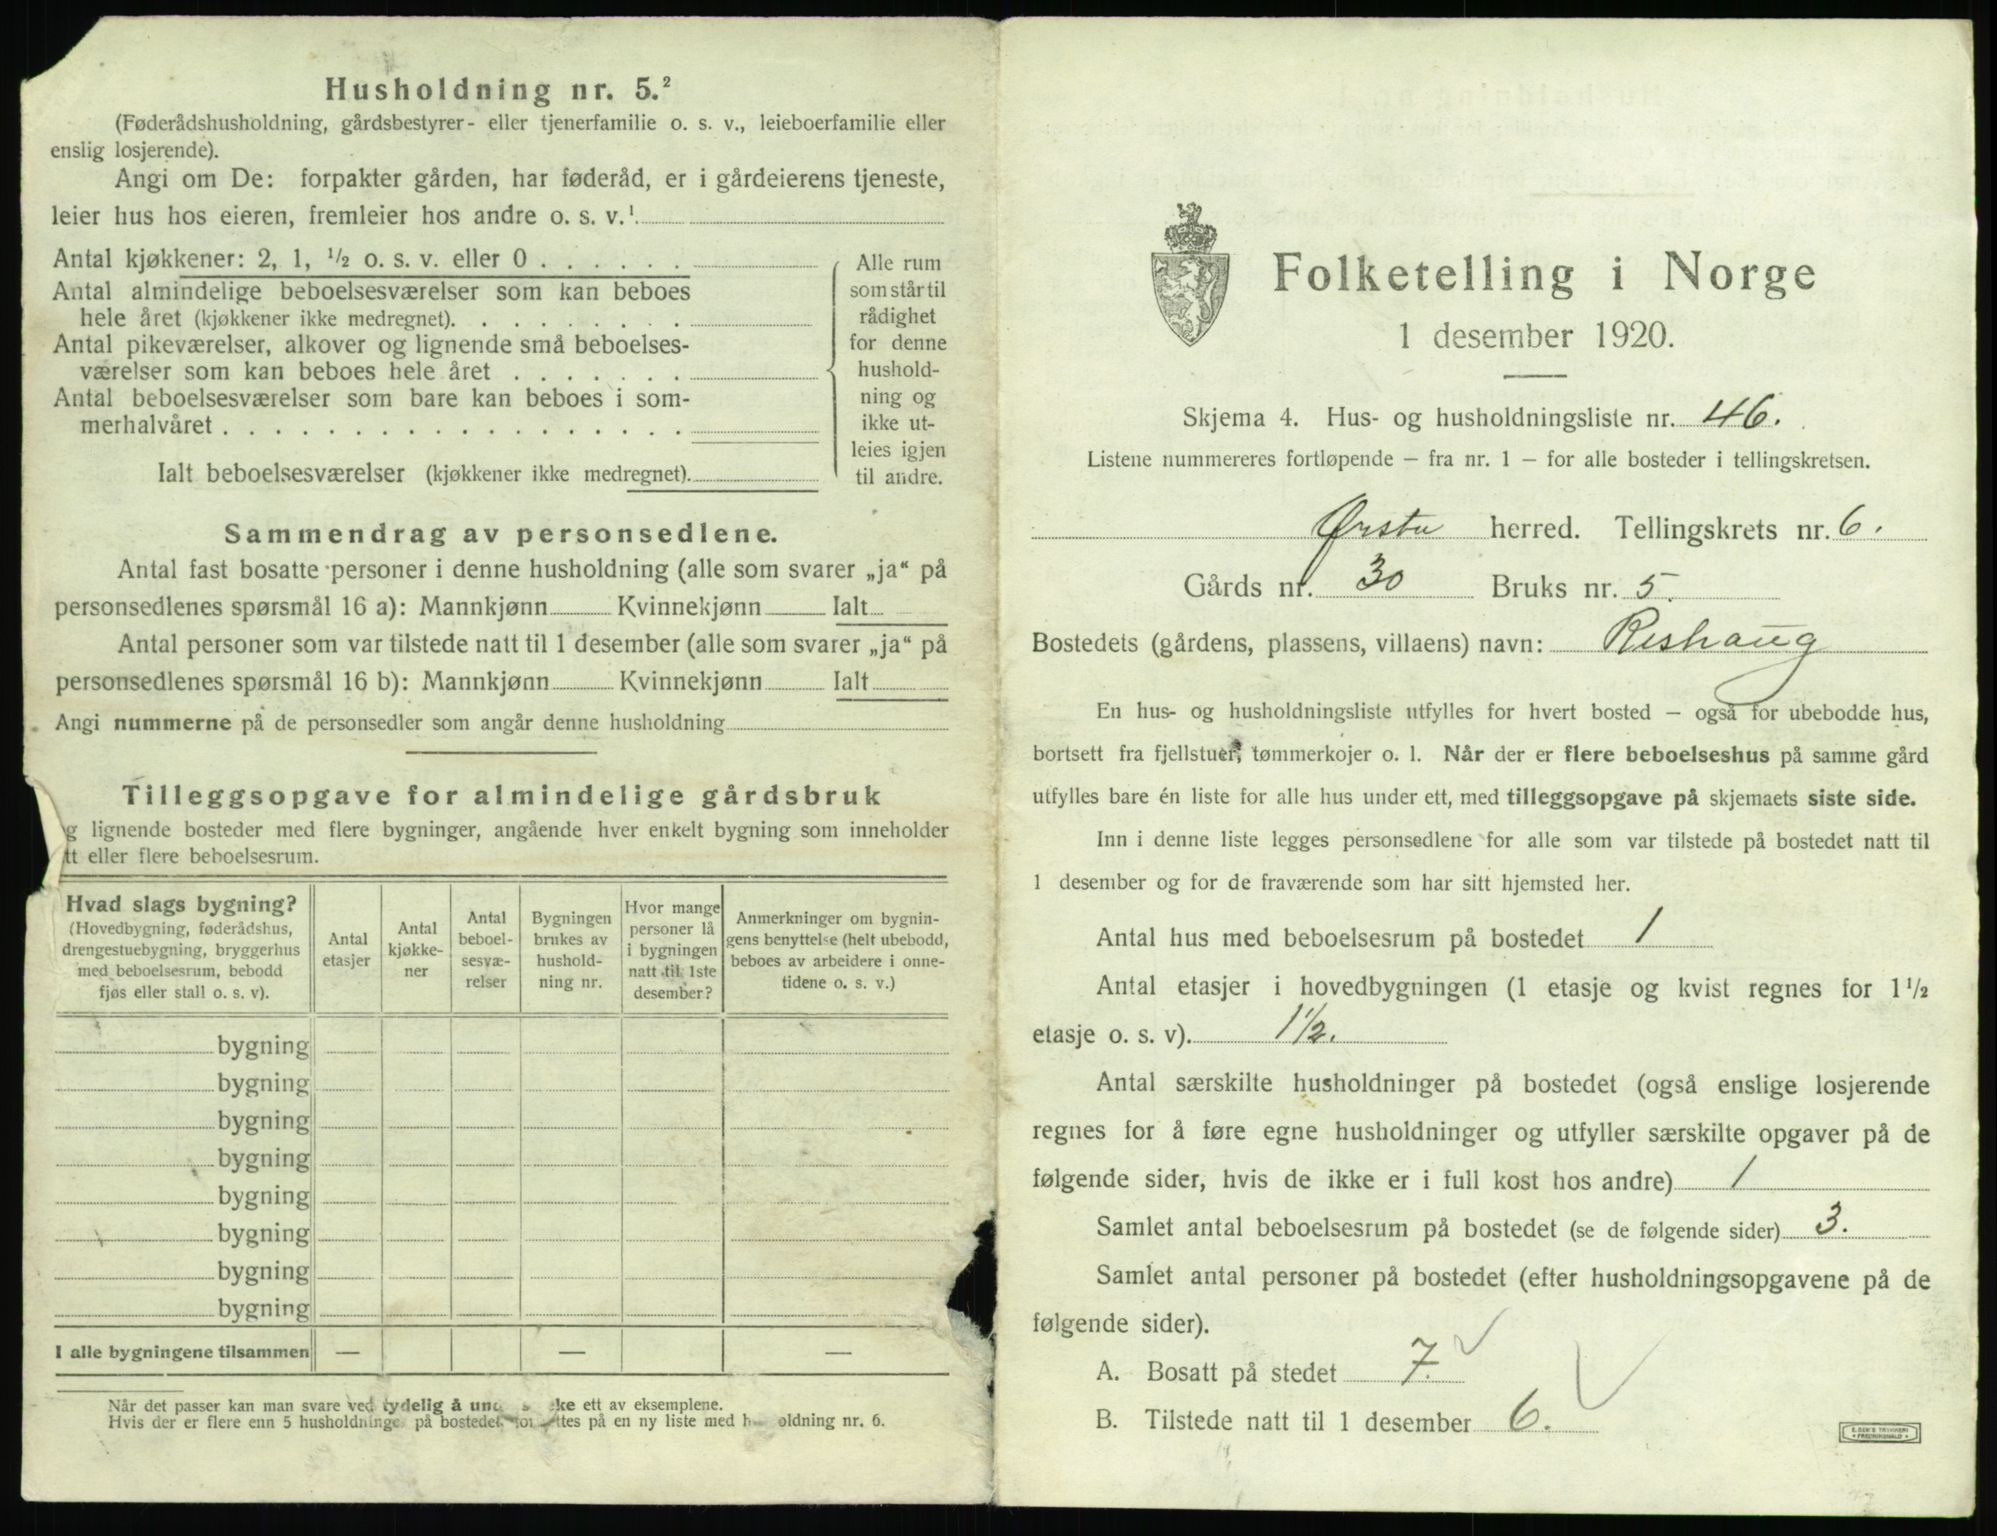 Husholdning nr. 5.²
(Føderådshusholdning, gårdsbestyrer- eller tjenerfamilie o. s. v., leieboerfamilie eller
enslig losjerende).
Angi om De: forpakter gården, har føderåd, er i gårdeierens tjeneste,
leier hus hos eieren, fremleier hos andre o. s. v.¹
Antal kjøkkener: 2, 1, ½ o. s. v. eller 0
Antal almindelige beboelsesværelser som kan beboes
hele året (kjøkkener ikke medregnet).
Antal pikeværelser, alkover og lignende små beboelses-
værelser som kan beboes hele året
Antal beboelsesværelser som bare kan beboes i som-
merhalvåret
Ialt beboelsesværelser (kjøkkener ikke medregnet).
Alle rum
som står til
rådighet
for denne
hushold-
ning og
ikke ut-
leies igjen
til andre.
Sammendrag av personsedlene.
Antal fast bosatte personer i denne husholdning (alle som svarer „ja“ på
personsedlenes spørsmål 16 a): Mannkjønn Kvinnekjønn Ialt
Antal personer som var tilstede natt til 1 desember (alle som svarer „ja“ på
personsedlenes spørsmål 16 b): Mannkjønn Kvinnekjønn Ialt
Angi nummerne på de personsedler som angår denne husholdning
Tilleggsopgave for almindelige gårdsbruk
g lignende bosteder med flere bygninger, angående hver enkelt bygning som inneholder
tt eller flere beboelsesrum.
Hvad slags bygning?
(Hovedbygning, føderådshus,
drengestuebygning, bryggerhus
med beboelsesrum, bebodd
fjøs eller stall o. s. v).
Antal
etasjer
Antal
kjøkke-
ner
Antal
beboel-
sesvæ-
relser
Bygningen
brukes av
hushold-
ning nr.
Hvor mange
personer lå
i bygningen
natt til 1ste
desember?
Anmerkninger om bygnin-
gens benyttelse (helt ubebodd,
beboes av arbeidere i onne-
tidene o. s. v.)
bygning
bygning
bygning
bygning
bygning
bygning
bygning
bygning
I alle bygningene tilsammen — — —
Når det passer kan man svare ved tydelig å un ke ett av eksemplene.
Hvis der er flere enn 5 husholdninge på bostedet på en ny liste med h oldning nr. 6.
Folketelling i Norge
1 desember 1920.
Skjema 4. Hus- og husholdningsliste nr. 46.
Listene nummereres fortløpende – fra nr. 1 – for alle bosteder i tellingskretsen.
Ørsta herred. Tellingskrets nr. 6.
Gårds nr. 30 Bruks nr. 5.
Bostedets (gårdens, plassens, villaens) navn: Rishaug
En hus- og husholdningsliste utfylles for hvert bosted – også for ubebodde hus,
bortsett fra fjellstuer, tømmerkojer o. l. Når der er flere beboelseshus på samme gård
utfylles bare én liste for alle hus under ett, med tilleggsopgave på skjemaets siste side.
Inn i denne liste legges personsedlene for alle som var tilstede på bostedet natt til
1 desember og for de fraværende som har sitt hjemsted her.
Antal hus med beboelsesrum på bostedet 1
Antal etasjer i hovedbygningen (1 etasje og kvist regnes for 1½
etasje o. s. v). 1½.
Antal særskilte husholdninger på bostedet (også enslige losjerende
regnes for å føre egne husholdninger og utfyller særskilte opgaver på de
følgende sider, hvis de ikke er i full kost hos andre) 1
Samlet antal beboelsesrum på bostedet (se de følgende sider) 3.
Samlet antal personer på bostedet (efter husholdningsopgavene på de
følgende sider).
A. Bosatt på stedet 7.
B. Tilstede natt til 1 desember 6.